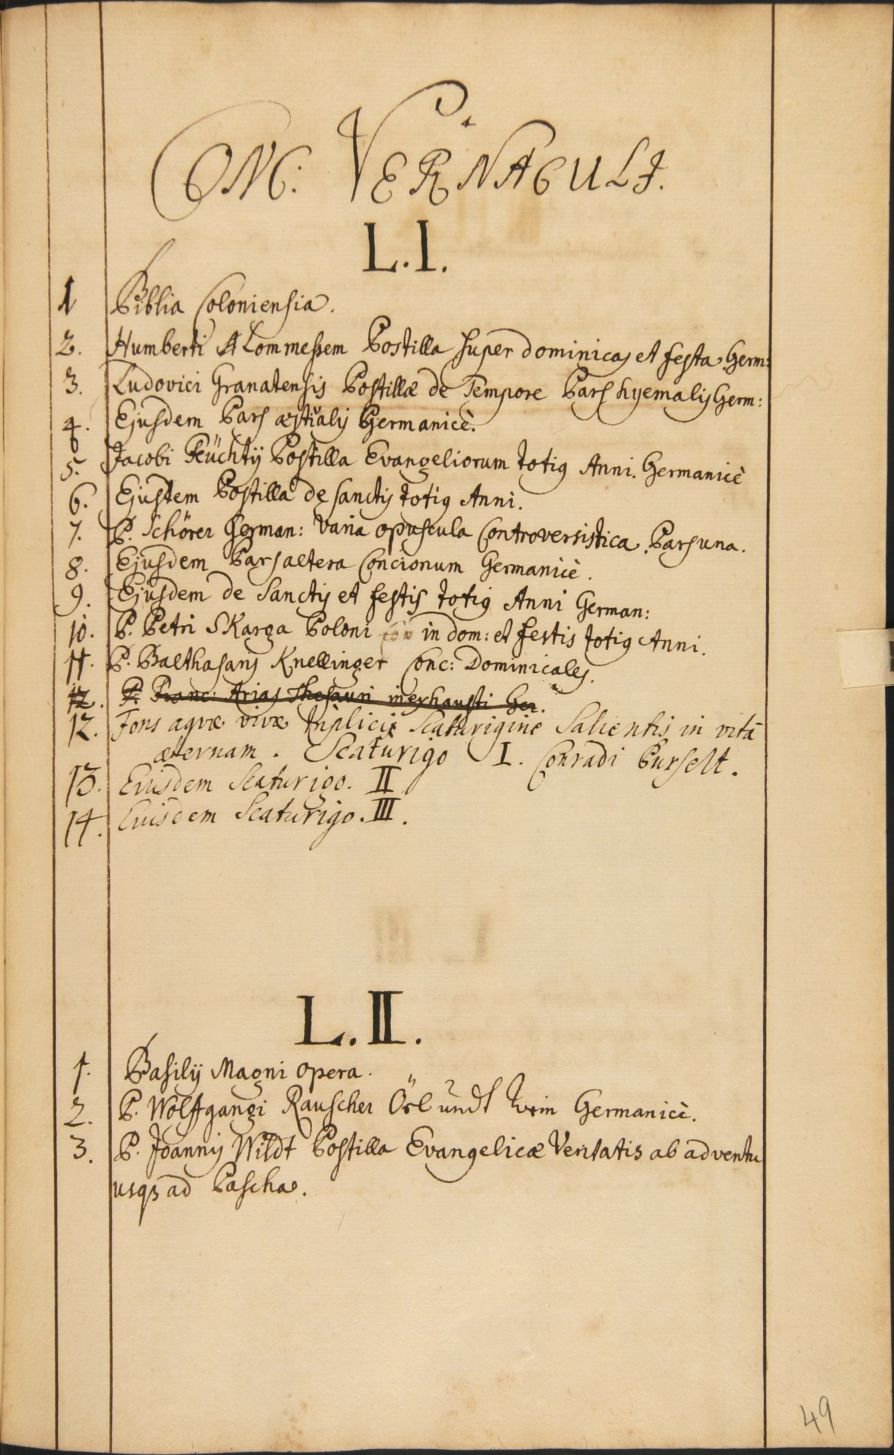 CONC: VERNACULI.
L.I.
1 Biblia Coloniensia.
2. Humberti A Lommessem Postilla super dominicas et festa Germ:
3. Ludovici Granatensis Postillæ de Tempore Pars hyemalis Germ:
4. Ejusdem Pars æstivalis Germanicè.
5. Jacobi Feüchtij Postilla Evangeliorum totius Anni. Germanicè
6. Ejusdem Postilla de sanctis totius Anni.
7. P. Schörer German: varia opuscula Controversistica. Pars una.
8. Ejusdem Pars altera Concionum Germanicè.
9. Ejusdem de Sanctis et festis totius Anni German:
10. P. Petri Skarga Poloni in dom: et festis totius Anni.
11. P. Balthasaris Knellinger Conc: Dominicales.
12. P. Franc: Arias Thesauri inexhausti Ger.
12. Fons aquæ vivæ Triplicis Scaturigine Salientis in vitā
æternam. Scaturigo I. Conradi Purselt.
13. Eiusdem Scaturigo. II
14. Eiusdem Scaturigo. III.
L.II.
1. Basilij Magni opera.
2. P. Wolfgangi Rauscher Öel undt Wein Germanicè.
3. P. Joannis Wildt Postilla Evangelicæ Veritatis ab adventu
usqз ad Pascha.
49